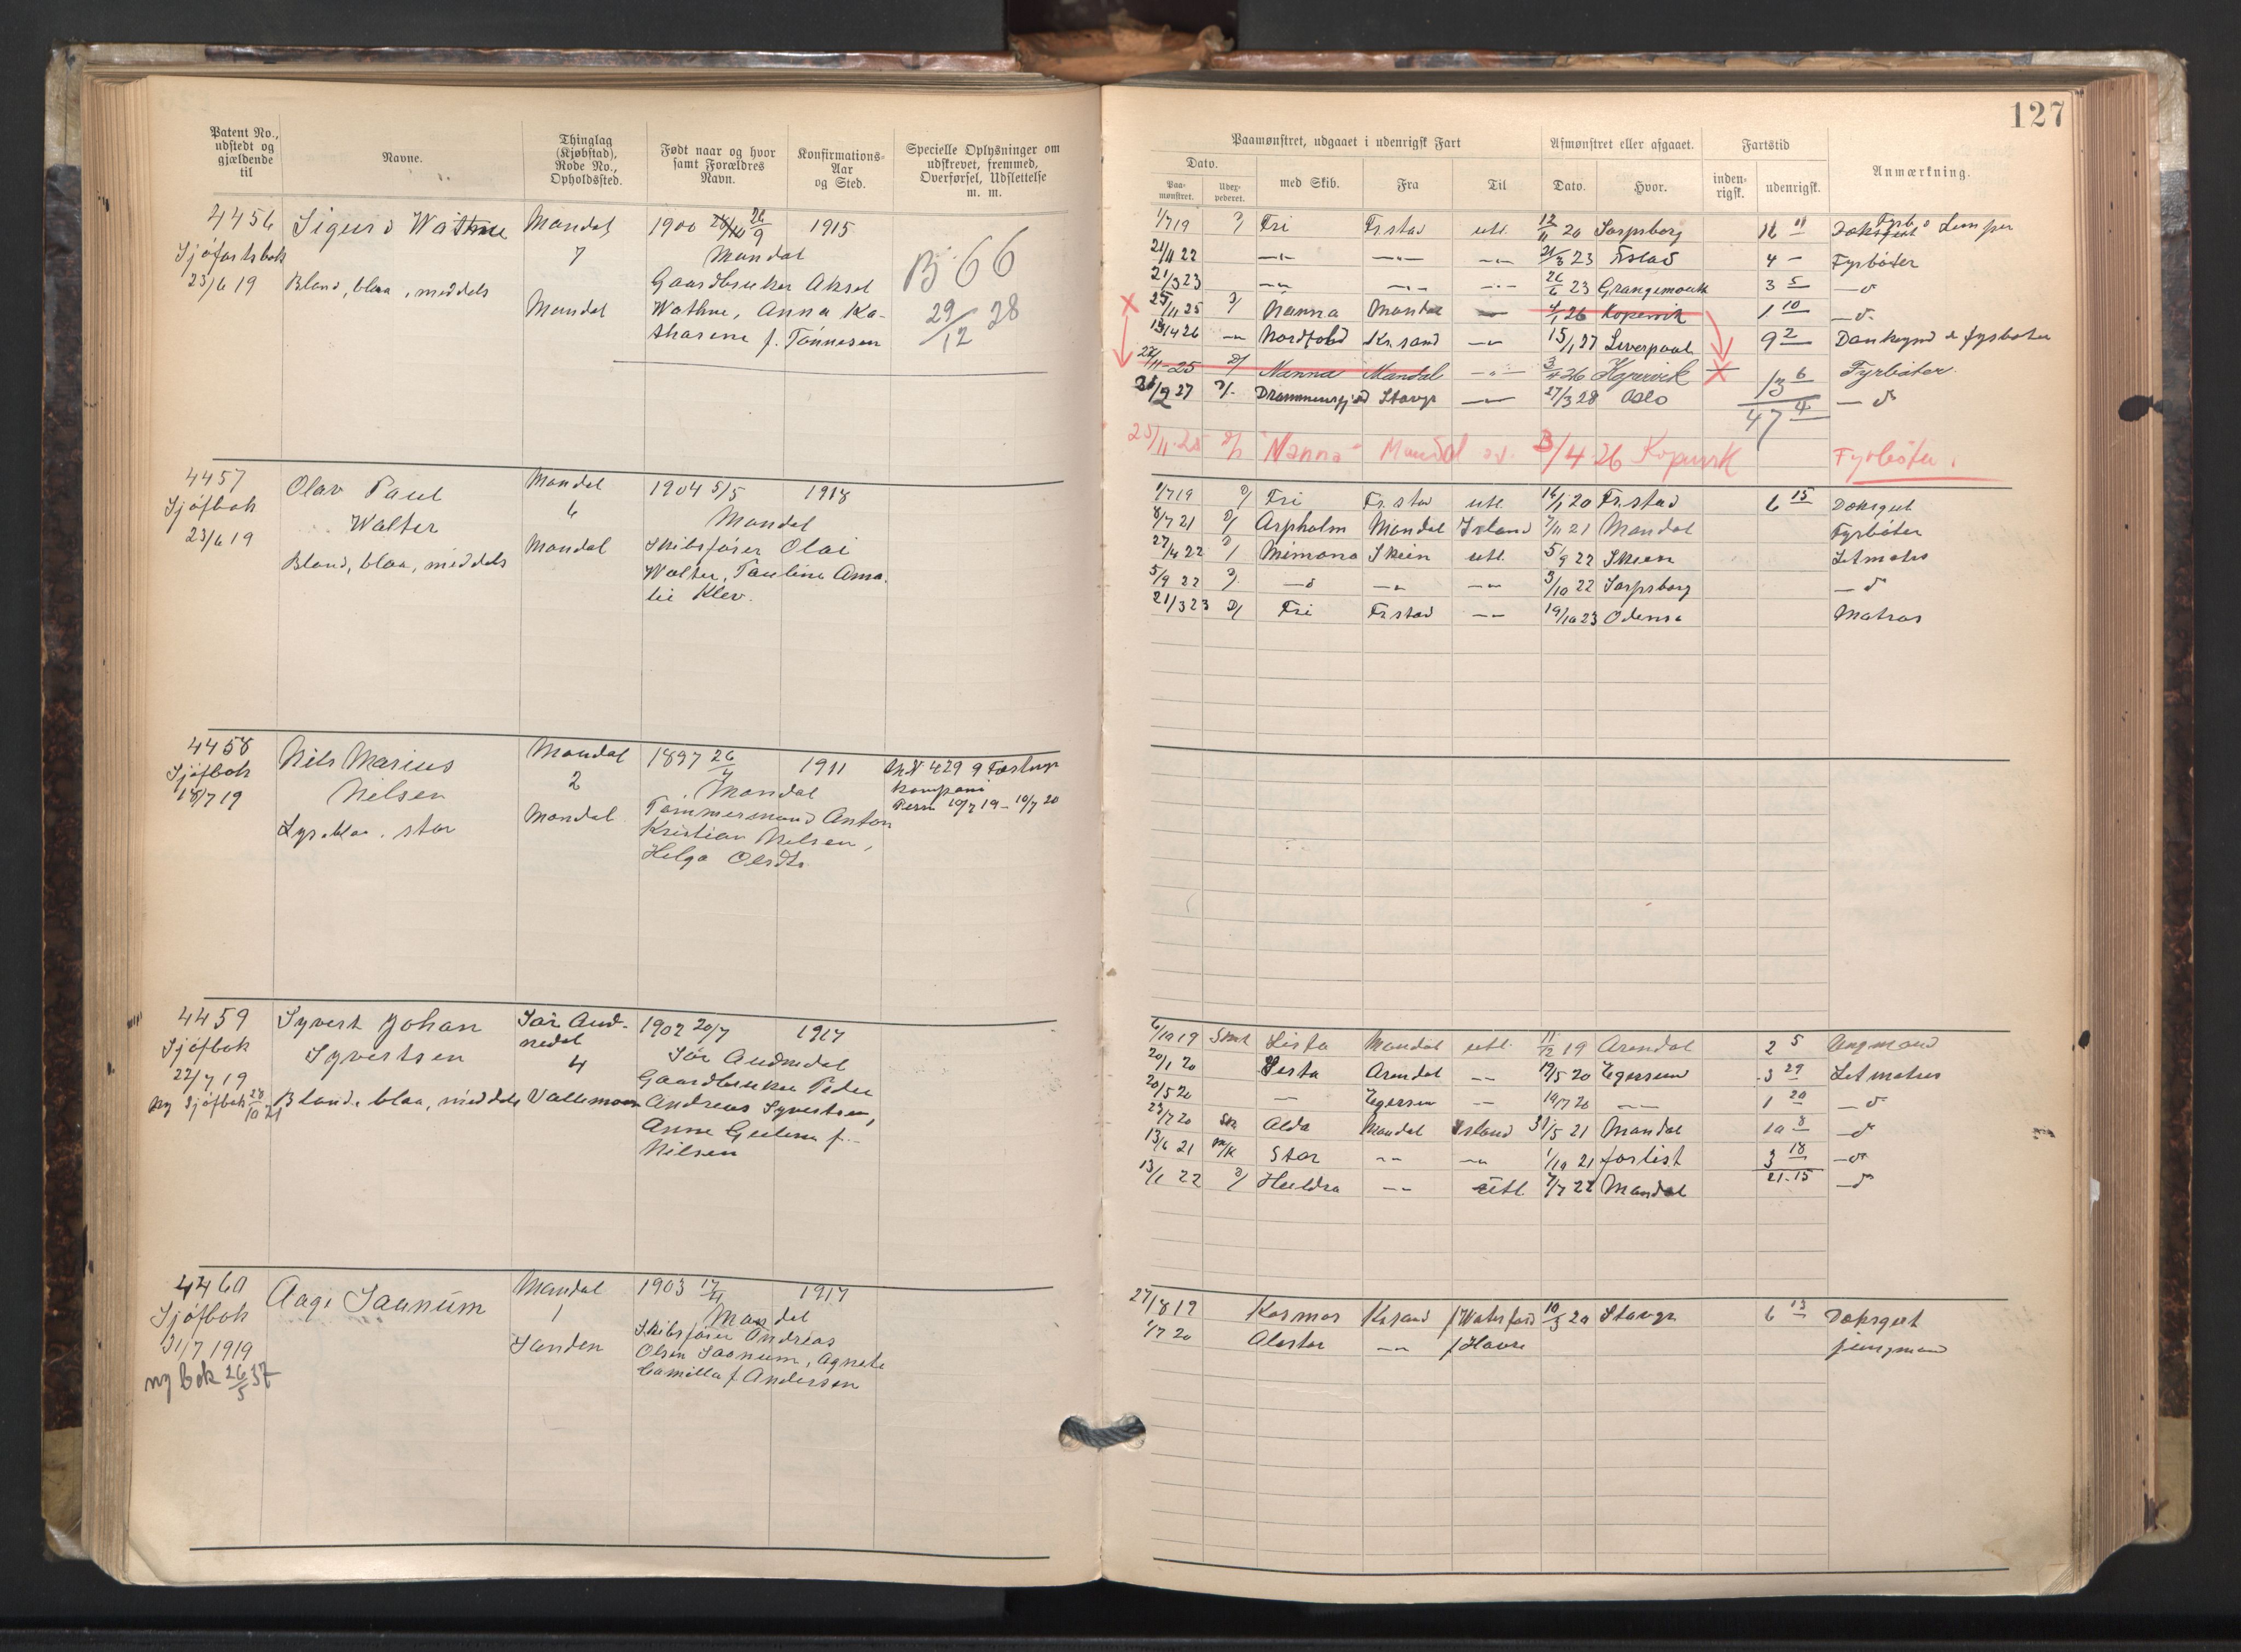 127
Patent No., udstedt og gjældende til
Navne.
Thinglag (Kjøbstad), Rode No., Opholdssted.
Født naar og hvor samt Forældres Navn.
Konfirmations-Aar og Sted.
Specielle Oplysninger om udskrevet, fremmed, Overførsel, Udslettelse m. m.
Paamønstret, udgaaet i udenrigsk Fart
Afmønstret eller afgaaet.
Fartstid
Anmærkning.
Dato.
Paa-mønstret.
med Skib.
Fra
Til
Dato.
Hvor.
inden-rigsk.
udenrigsk.
4456 Sigurd Wathne Mandal 1900 26/9 1915
Sjøfartsbok 7 Mandal B 66
23/6 19 Blond, blaa, middels Gaardbruker Aksel
Mandal Wathne, Anna Ka- 29/12 28
tharine f. Tönnesen
1/7 19 D/ Fri Fr.stad utl. 12/11 20 Sarpsborg 16 11 Lemper
21/11 22 -"- -"- -"- 21/3 23 Fr.stad 4 - Fyrböter
21/3 23 -"- -"- -"- 26/6 23 Grangemouth 3 5 -d-
25/11 25 D/ Nanna Mandal 4/1 26 Kopervik 1 10 -d-
13/4 26 -"- Nordfold Kr.sand -"- 15/1 27 Liverpool 9 2 Donkeymd & fyrböter
25/11-25 D/ Nanna Mandal -"- 3/4 26 Kopervik Fyrböter
D/. Drammensfjord Stavgr -"- 27/3 28 Oslo 13 6 -d-
47 4
25/11-25 D/ "Nanna" Mandal 3/4 26 Kopervik Fyrböter.
4457 Olav Paul Mandal 1904 5/5 1918
Sjøfbok Walter 6 Mandal
23/6 19 Mandal Skibsfører Olai
Blond, blaa, middels Walter, Pauline Ama-
lie Klev.
1/7 19 D/ Fri Fr.stad utl. 16/1 20 Fr.stad 6 15 Doksgut
8/7 21 D/ Aspholm Mandal Island 7/11 21 Mandal Fyrböter
27/4 22 D/ Mimona Skien utl. 5/9 22 Skien Letmatros
5/9 22 D/. -d- -"- -"- 3/10 22 Sarpsborg -d-
21/3 23 D/ Fri Fr.stad -"- 19/10 23 Odense Matros
4458 Nils Marius Mandal 1897 26/4 1911
Sjøfbok Nilsen 2 Mandal
18/7 19 Mandal Tømmermand Anton
Lys. blaa. stor Kristian Nilsen,
Helga Olsdtr.
Kompani
Perm 10/7 19 - 10/7 20
4459 Syvert Johan Sör Aud- 1902 20/7 1917
Sjøfbok Syvertsen nedal Sör Audnedal
22/7 19 4 Gaardbruker Peder
Ny Sjøfbok 28/10 21 Blond. blaa, middels Andreas Syvertsen,
Anne Guline f.
Nilsen
6/10 19 Lista Mandal utl. 11/12 19 Arendal 2 5 Ungmand
20/1 20 Lista Arendal -"- 19/5 20 Egersun 3 29 Letmatros
20/5 20 -"- Egersun -"- 19/7 20 -"- 1 29 -d-
23/7 20 Alda Mandal Island 31/5 21 Mandal 10 8 -d-
13/6 21 M/K Star -"- -"- 1/10 21 forlist 3 18 -d-
13/1 22 D/ Huldra -"- utl. 7/7 22 Mandal -d-
21.15
4460 Aage Saanum Mandal 1903 17/11 1917
Sjøfbok 1 Mandal
31/7 1919 Sanden Skibsfører Andreas
ny bok 26/5 37 Olsen Saanum, Agnete
Camilla f Andersen
27/8 19 Kosmos Kr.sand f/Waterford 10/3 20 Stavgr 6 13 Doksgut
1/7 20 Alastor -"- f/Havre jungmand